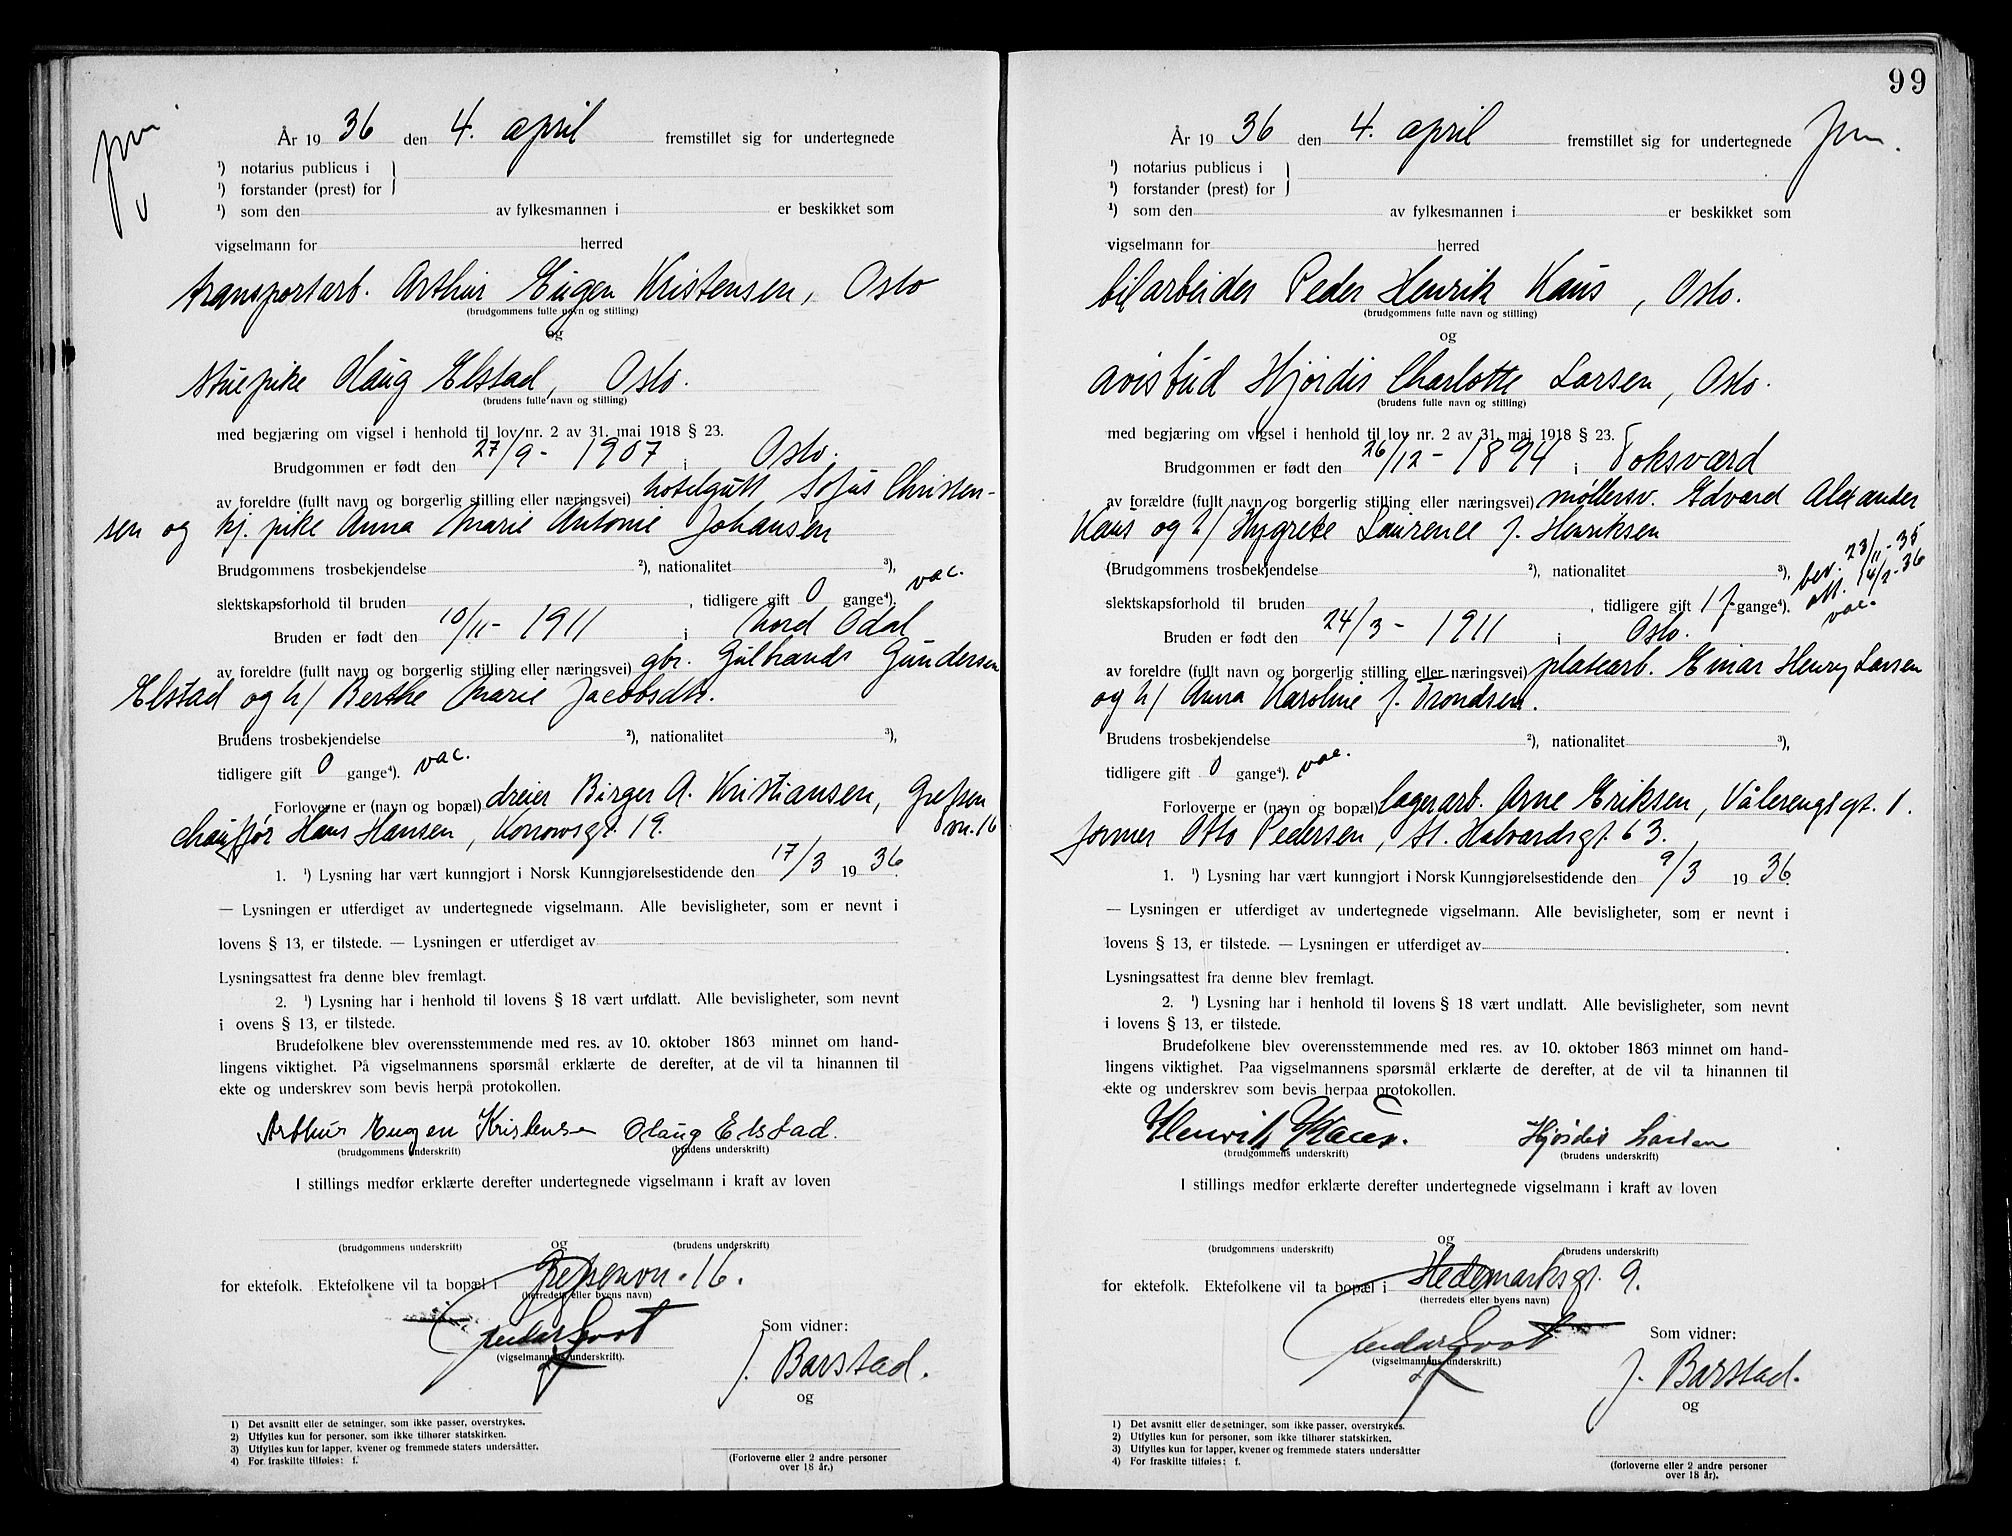 År 1936 den 4. april fremstillet sig for undertegnede
¹) notarius publicus i
¹) forstander (prest) for
¹) som den av fylkesmannen i er beskikket som
vigselmann for herred
transportarb. Arthur Eugen Kristensen, Oslo
(brudgommens fulle navn og stilling)
og
stuepike Olaug Elstad, Oslo.
(brudens fulle navn og stilling)
med begjæring om vigsel i henhold til lov nr. 2 av 31. mai 1918 § 23.
Brudgommen er født den 27/9 - 1907 i Oslo.
av foreldre (fullt navn og borgerlig stilling eller næringsvei) hotelgutt Sofus Christen-
sen og hj. pike Anna Marie Antonie Johansen
Brudgommens trosbekjendelse ²), nationalitet ³),
slektskapsforhold til bruden , tidligere gift 0 gange⁴). vac.
Bruden er født den 10/11 - 1911 i Nord Odal
av foreldre (fullt navn og borgerlig stilling eller næringsvei) gbr. Gulbrands Gundersen
Elstad og h/ Berthe Marie Jacobsdtr.
Brudens trosbekjendelse ²), nationalitet ³),
tidligere gift 0 gange⁴). vac.
Forloverne er (navn og bopæl) dreier Birger A. Kristiansen, Grefsen
vn. 16
chauffør Hans Hansen, Konowsgt. 19.
1. ¹) Lysning har vært kunngjort i Norsk Kunngjørelsestidende den 17/3 1936.
— Lysningen er utferdiget av undertegnede vigselmann. Alle bevisligheter, som er nevnt i
lovens § 13, er tilstede. — Lysningen er utferdiget av
Lysningsattest fra denne blev fremlagt.
2. ¹) Lysning har i henhold til lovens § 18 vært undlatt. Alle bevisligheter, som nevnt
i ovens § 13, er tilstede.
Brudefolkene blev overensstemmende med res. av 10. oktober 1863 minnet om hand-
lingens viktighet. På vigselmannens spørsmål erklærte de derefter, at de vil ta hinannen til
ekte og underskrev som bevis herpå protokollen.
Arthur Eugen Kristensen Olaug Elstad.
(brudgommens underskrift) (brudens underskrift)
I stillings medfør erklærte derefter undertegnede vigselmann i kraft av loven
og
(brudgommens underskrift) (brudens underskrift)
for ektefolk. Ektefolkene vil ta bopæl i Grefsenvn. 16.
(herredets eller byens navn)
Som vidner:
(vigselmannens underskrift).
J. Barstad.
og
1) Det avsnitt eller de setninger, som ikke passer, overstrykes.
2) Utfylles kun for personer, som ikke tilhører statskirken.
3) Utfylles kun for lapper, kvener og fremmede staters undersåtter.
4) For fraskilte tilføies: f.
(Forloverne eller 2 andre personer
over 18 år.)
99
År 1936 den 4. april fremstillet sig for undertegnede
¹) notarius publicus i
¹) forstander (prest) for
¹) som den av fylkesmannen i er beskikket som
vigselmann for herred
bilarbeider Peder Henrik Kaus, Oslo.
(brudgommens fulle navn og stilling)
og
avisbud Hjørdis Charlotte Larsen, Oslo.
(brudens fulle navn og stilling)
med begjæring om vigsel i henhold til lov nr. 2 av 31. mai 1918 § 23.
Brudgommen er født den 26/12 - 1894 i Foksværd
av forældre (fullt navn og borgerlig stilling eller næringsvei) møllersv. Edvard Alexander
Kaus og h/ Laurence f. Henriksen
(Brudgommens trosbekjendelse ²), nationalitet ³), bev. 23/11 - 35
att. 14/2 - 36
slektskapsforhold til bruden , tidligere gift 1 f. gange⁴). vac.
Bruden er født den 24/3 - 1911 i Oslo.
av foreldre (fullt navn og borgerlig stilling eller næringsvei) platearb. Einar Henry Larsen
og h/ Anna Karoline f. Trondsen.
Brudens trosbekjendelse ²), nationalitet ³),
tidligere gift 0 gange⁴). vac.
Forloverne er (navn og bopæl) lagerarb. Arne Eriksen, Vålerenggt. 1.
former Otto Pedersen, St. Halvardsgt. 63.
1. ¹) Lysning har vært kunngjort i Norsk Kunngjørelsestidende den 9/3 1936.
— Lysningen er utferdiget av undertegnede vigselmann. Alle bevisligheter, som er nevnt i
lovens § 13, er tilstede. — Lysningen er utferdiget av
Lysningsattest fra denne blev fremlagt.
2. ¹) Lysning har i henhold til lovens § 18 vært undlatt. Alle bevisligheter, som nevnt
i lovens § 13, er tilstede.
Brudefolkene blev overensstemmende med res. av 10. oktober 1863 minnet om hand-
lingens viktighet. Paa vigselmannens spørsmål erklærte de derefter, at de vil ta hinannen til
ekte og underskrev som bevis herpaa protokollen.
Henrik Kaus. Hjørdis Larsen
(brudgommens underskrift) (brudens underskrift)
I stillings medfør erklærte derefter undertegnede vigselmann i kraft av loven
og
(brudgommens underskrift) (brudens underskrift)
for ektefolk. Ektefolkene vil ta bopæl i Hedemarksgt. 9.
(herredets eller byens navn)
Som vidner:
(vigselmannens underskrift.)
J. Barstad.
og
1) Det avsnitt eller de setninger, som ikke passer, overstrykes.
2) Utfylles kun for personer, som ikke tilhører statskirken.
3) Utfylles kun for lapper, kvener og fremmede staters undersåtter
4) For fraskilte tilføies: f.
(forloverne eller 2 andre personer
over 18 år).